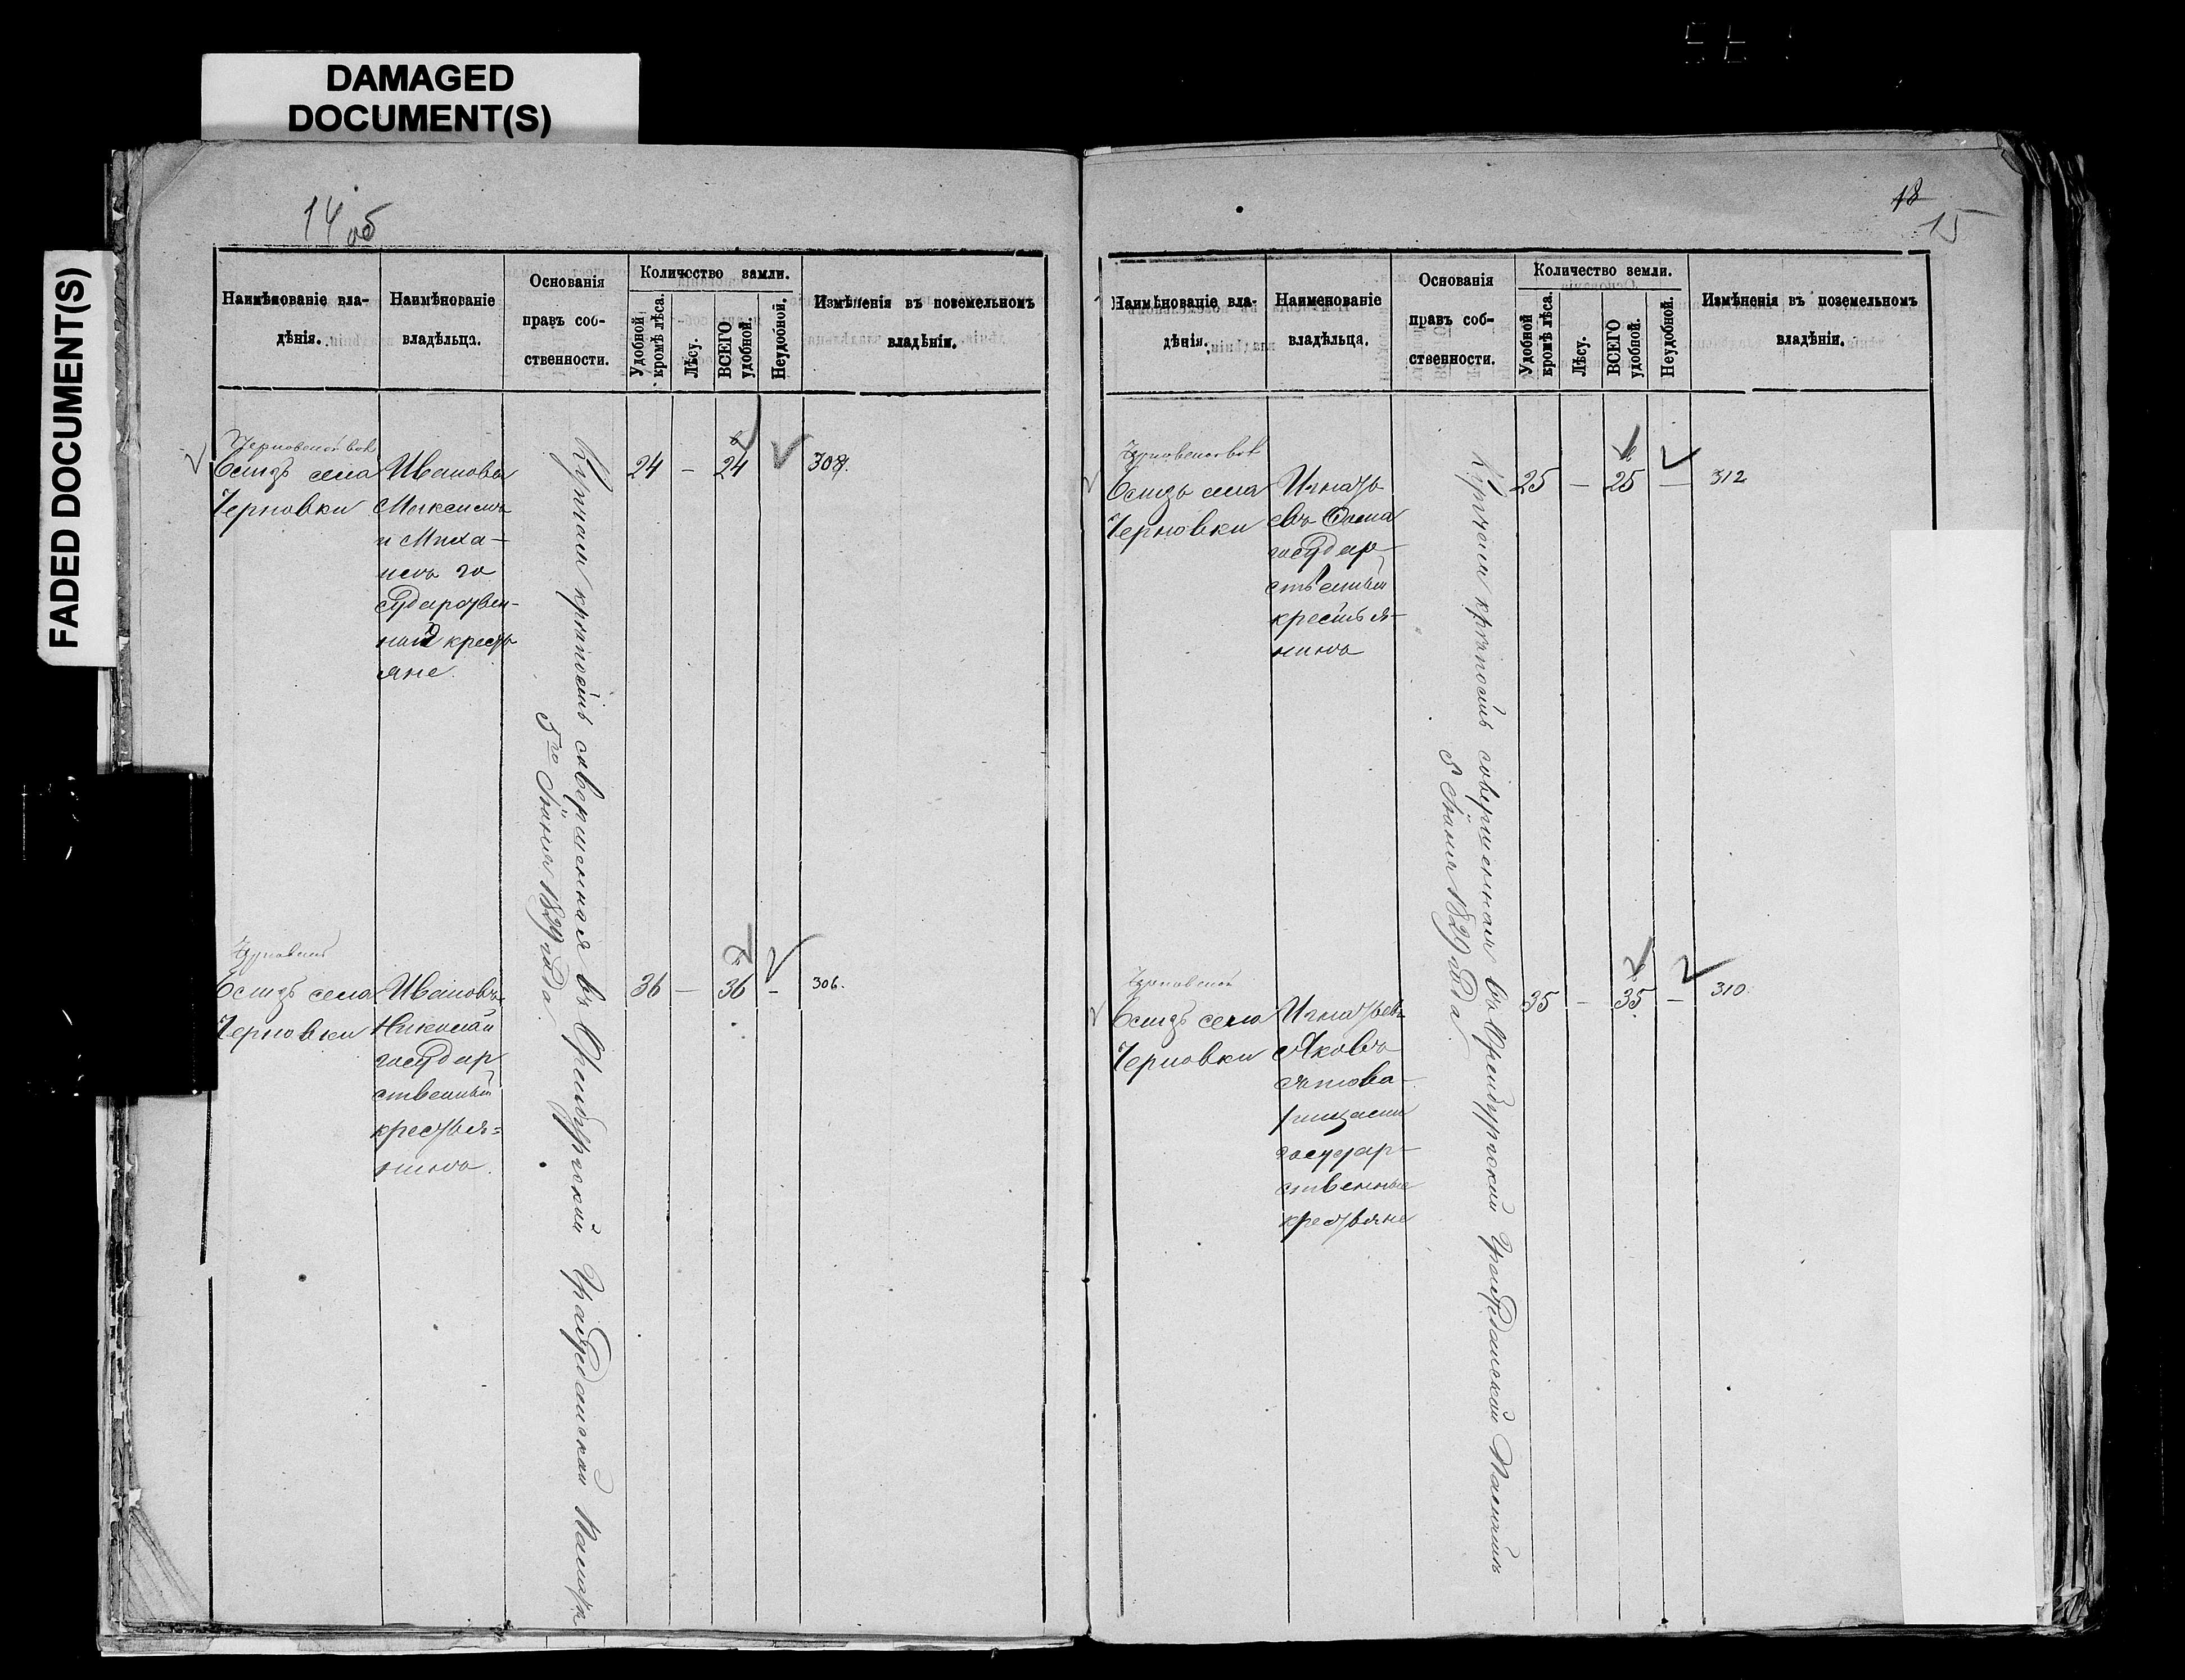 DAMAGED
DOCUMENT(S)
FADED DOCUMENT(S)
14 об
Наимѣнованіе вла-
дѣнія.
Наимѣнованіе
владѣльца.
Основанія
правъ соб-
ственности.
Количество земли.
Удобной
кромѣ лѣса.
Лѣсу.
ВСЕГО
удобной.
Неудобной.
Измѣненія въ поземельномъ
владѣніи.
Близь села
Черновки
Ивановы
Максимъ
и Миха-
илъ го
сударствен-
ные кресть
яне.
Купчая крѣпость совершенная въ Оренбургской Гражданской Палатѣ
5го Іюня 1829 года.
24 — 24
308.
Близь села
Черновки
Ивановъ
Николай
государ
ственный
кресть я=
нинъ.
36 — 36 —
306.
18
15
Наимѣнованіе вла-
дѣнія.
Наименованіе
владѣльца.
Основанія
правъ соб-
ственности.
Количество земли.
Удобной
кромѣ лѣса.
Лѣсу.
ВСЕГО
удобной.
Неудобной.
Измѣненія въ поземельномъ
владѣніи.
Близь села
Черновки
Игнать
евъ
государ-
ственный
крестья-
нинъ
Купчая крѣпость совершенная въ Оренбургской Гражданской Палатѣ
5 Іюня 1829 года.
25 — 25 —
312
Близь села
Черновки
Игнатьевъ
Яковъ
съ това-
рищами
государ-
ственные
крестьяне
35 — 35 —
310.